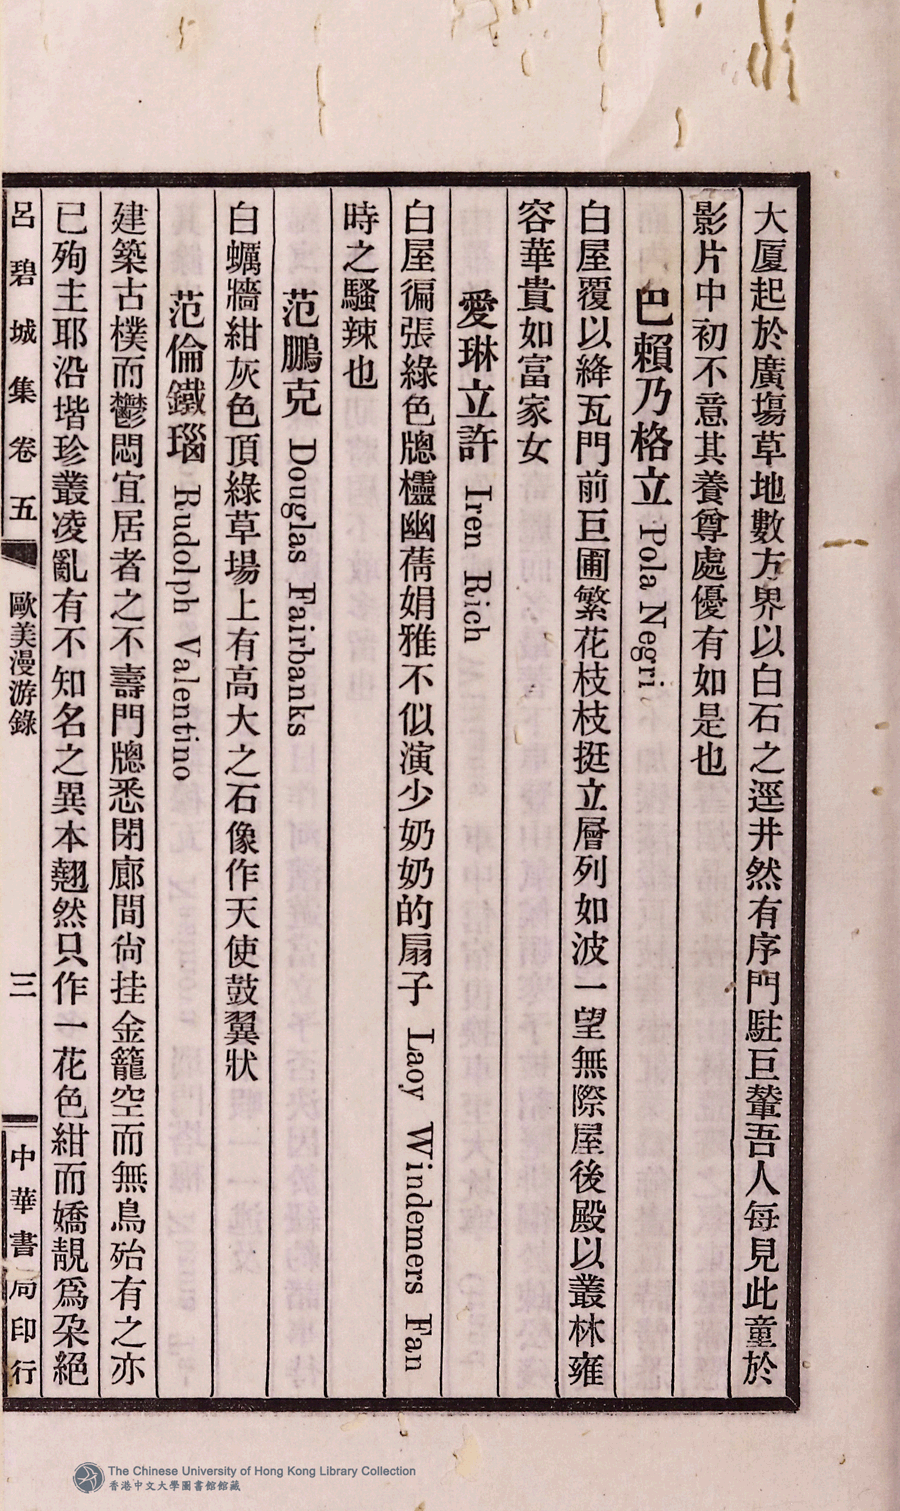 大厦起於廣塲草地數方界以白石之逕井然有序門駐巨輦吾人每見此童於
影片中初不意其養尊處優有如是也
巴賴乃格立 Pola Negri
白屋覆以絳瓦門前巨圃繁花枝枝挺立層列如波一望無際屋後殿以叢林雍
容華貴如富家女
愛琳立許 Iren Rich
白屋徧張綠色牕櫺幽蒨娟雅不似演少奶奶的扇子 Laoy Windemers Fan
時之騷辣也
范鵬克 Douglas Fairbanks
白蠣牆紺灰色頂綠草場上有高大之石像作天使鼓翼狀
范倫鐵瑙 Rudolph Valentino
建築古樸而鬱悶宜居者之不壽門牕悉閉廊間尙挂金籠空而無鳥殆有之亦
已殉主耶沿堦珍叢凌亂有不知名之異本翹然只作一花色紺而嬌靚爲朶絕
呂碧城集卷五 歐美漫游錄 三 中華書局印行
The Chinese University of Hong Kong Library Collection
香港中文大學圖書館館藏